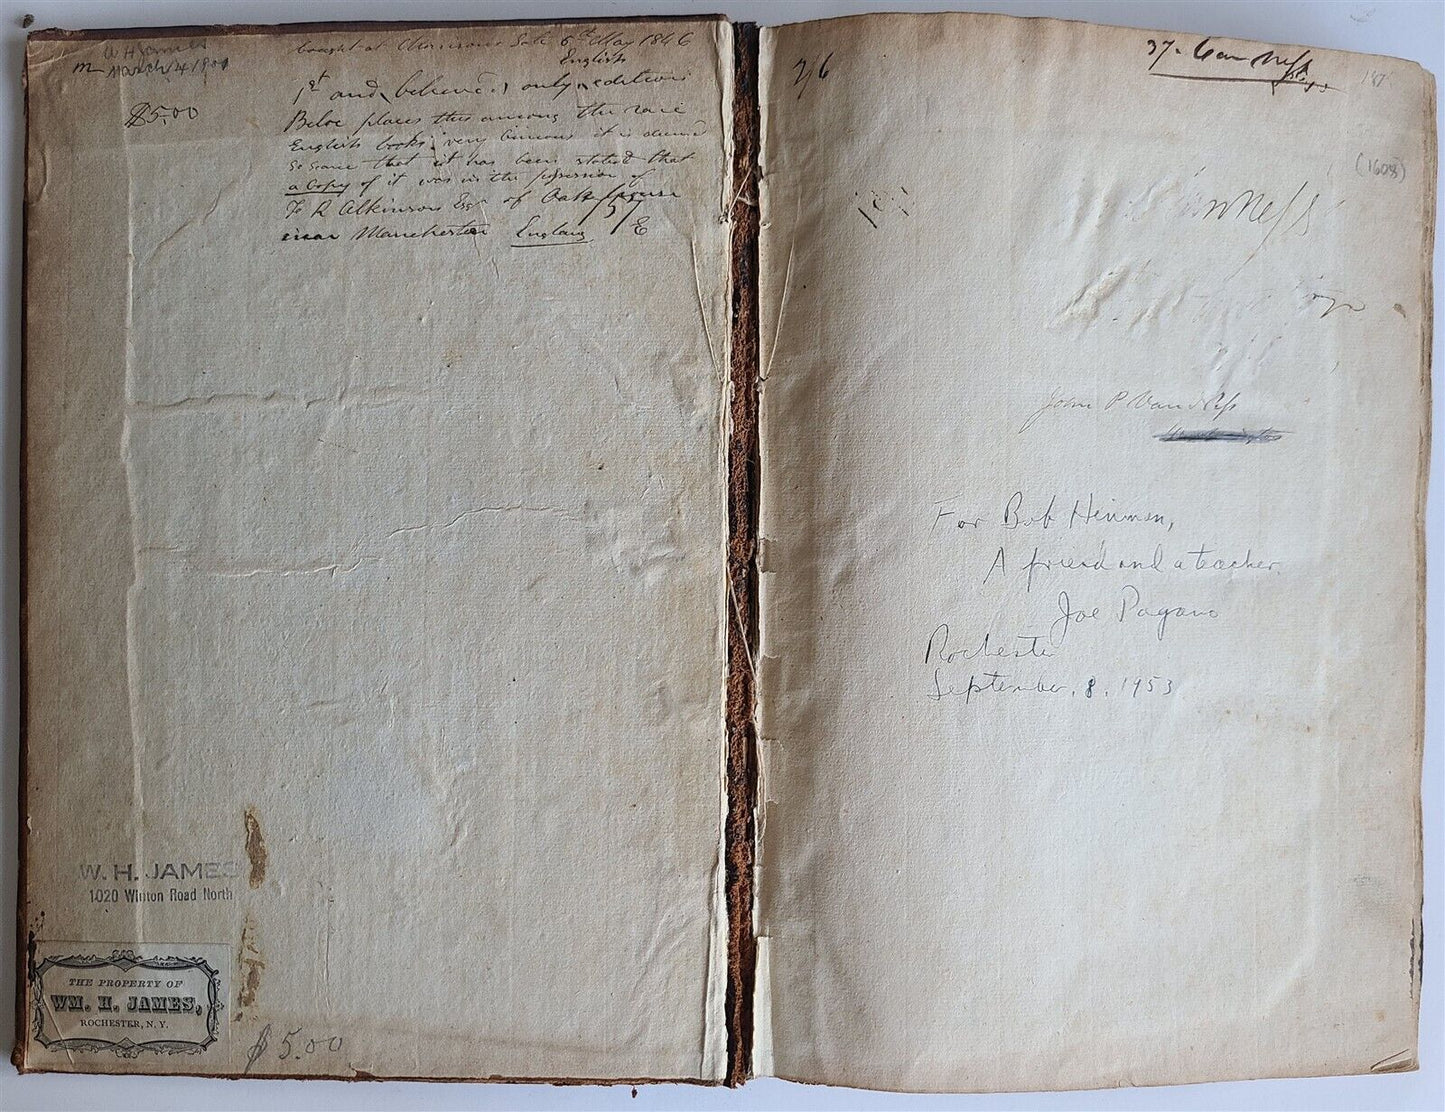 W H James
March 4 1900
$5.00
bought at Sale 6th May 1846
English
1st and believed only edition
Beloe places this among the rare
English books; very curious it is
so scarce that it has been stated that
a Copy of it was in the possession of
R Atkinson Esqr of Oak house
near Manchester England
W. H. JAMES
1020 Winton Road North
THE PROPERTY OF
WM. H. JAMES,
ROCHESTER, N. Y.
$5.00
2/6
37.
187
John P Van Ness
For Bob Hinman,
A friend and a teacher.
Joe Pagano
Rochester
September, 8, 1953